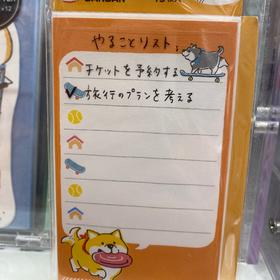 やることリスト
チケットを予約する
旅行のプランを考える